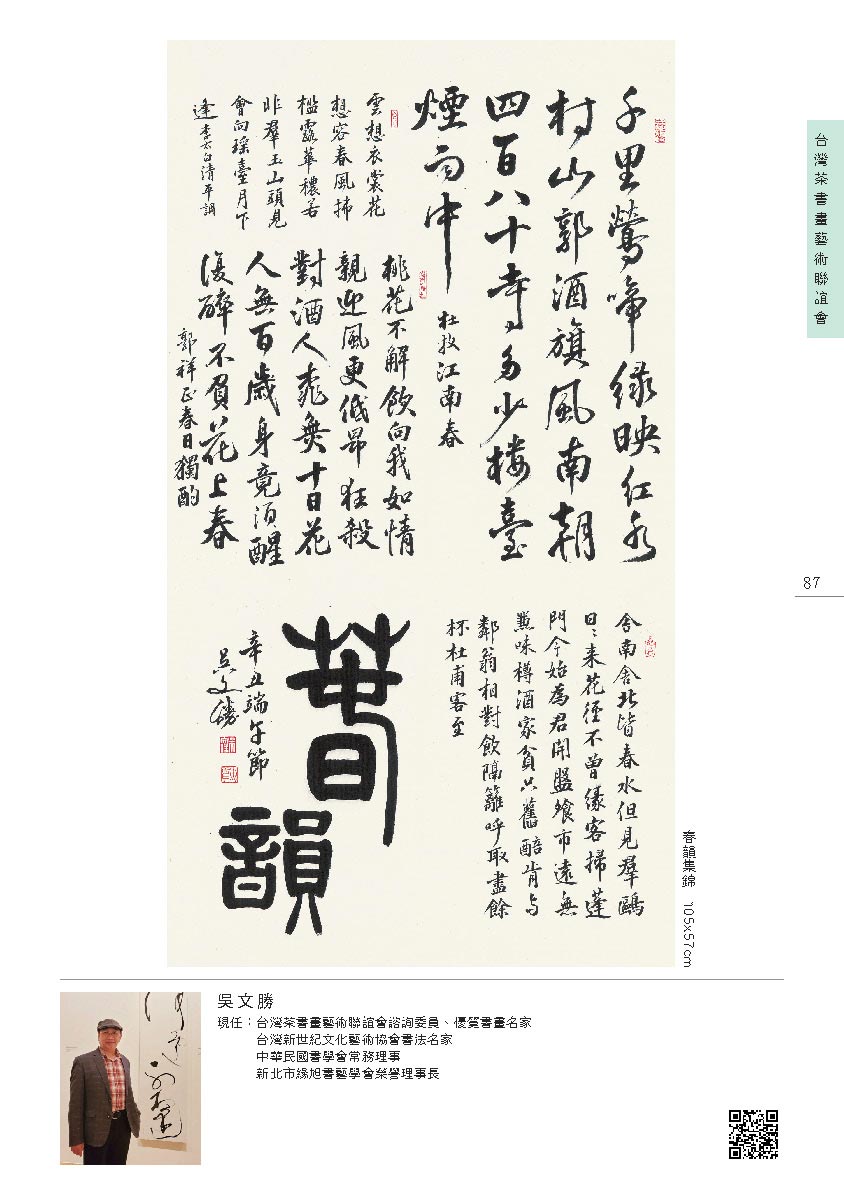 台灣茶書畫藝術聯誼會
千里鶯啼綠映紅水
村山郭酒旗風南朝
四百八十寺多少樓臺
煙雨中
杜牧江南春
雲想衣裳花
想容春風拂
檻露華穠若
非羣玉山頭見
會向瑤臺月下
逢 李太白清平調
桃花不解飲向我如情
親迎風更低昂狂殺
對酒人桃無十日花
人無百歲身竟須醒
復醉不負花上春
郭祥正春日獨酌
舍南舍北皆春水但見羣鷗
日〻來花徑不曾緣客掃蓬
門今始為君開盤飧市遠無
兼味樽酒家貧只舊醅肯与
鄰翁相對飲隔籬呼取盡餘
杯杜甫客至
春韻
辛丑端午節
吳文勝
87
春韻集錦 105x57cm
吳文勝
現任：台灣茶書畫藝術聯誼會諮詢委員、優質書畫名家
台灣新世紀文化藝術協會書法名家
中華民國書學會常務理事
新北市緣旭書藝學會榮譽理事長